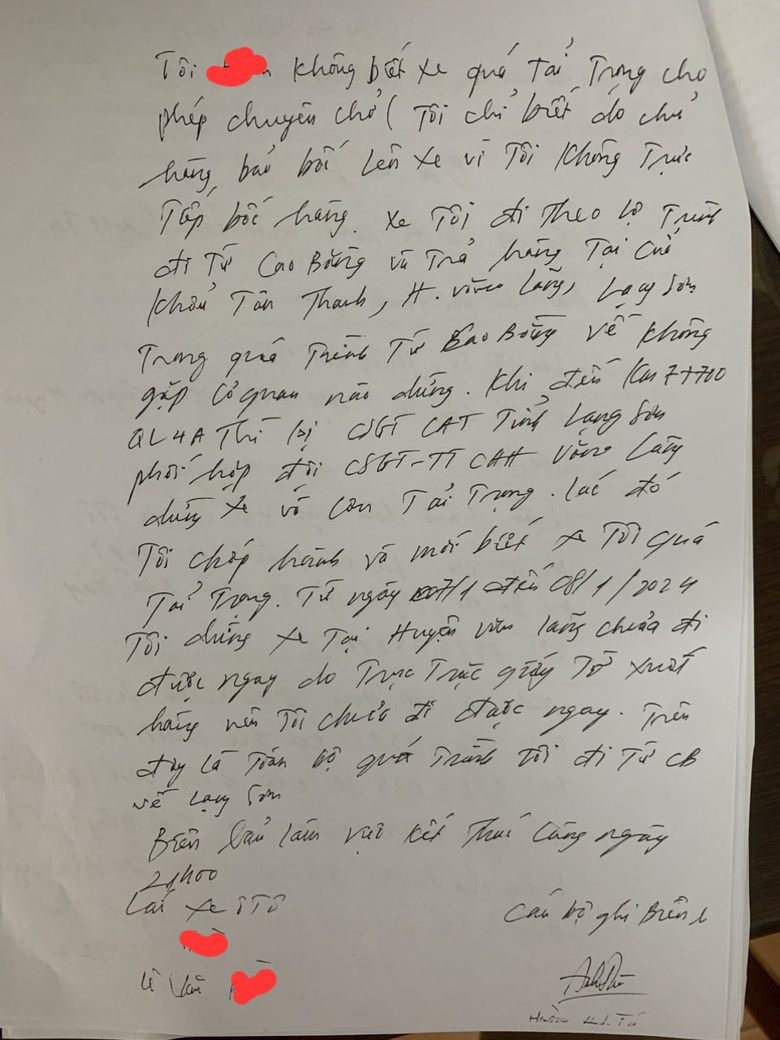 Tôi không biết xe quá tải trọng cho
phép chuyên chở ( Tôi chỉ biết do chủ
hàng bảo bốc lên xe vì Tôi không trực
Tiếp bốc hàng. xe Tôi đi theo lộ trình
đi Từ Cao Bằng và Trả hàng Tại cửa
khẩu Tân Thanh, H. Văn Lãng, Lạng Sơn
Trong quá Trình Từ Cao Bằng về không
gặp cơ quan nào dừng. Khi đến Km7+700
QL4A Thì bị CSGT CAT Tỉnh Lạng Sơn
phối hợp đội CSGT-TT CAH Văn Lãng
dừng xe và cân Tải Trọng. lúc đó
Tôi chấp hành và mới biết xe Tôi quá
Tải Trọng. Từ ngày 07/1 đến 08/1/2024
Tôi dừng xe Tại Huyện văn lãng chưa đi
được ngay do Trục Trặc giấy Tờ xuất
hàng nên Tôi chưa đi được ngay. Trên
đây là Toàn bộ quá Trình tôi đi Từ CB
về Lạng Sơn
Biên bản làm việc kết Thúc cùng ngày
21h00
Lái xe ô Tô
Cán bộ ghi Biên b
Lê Văn